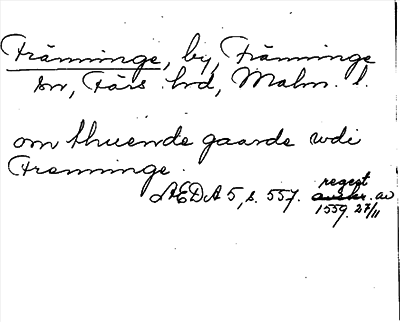 Fränninge, by, Fränninge
sn, Färs hd, Malm. l.
om thuende gaarde udi
Frenninge.
ÆDA 5, s. 557. regest av
1559 27/11